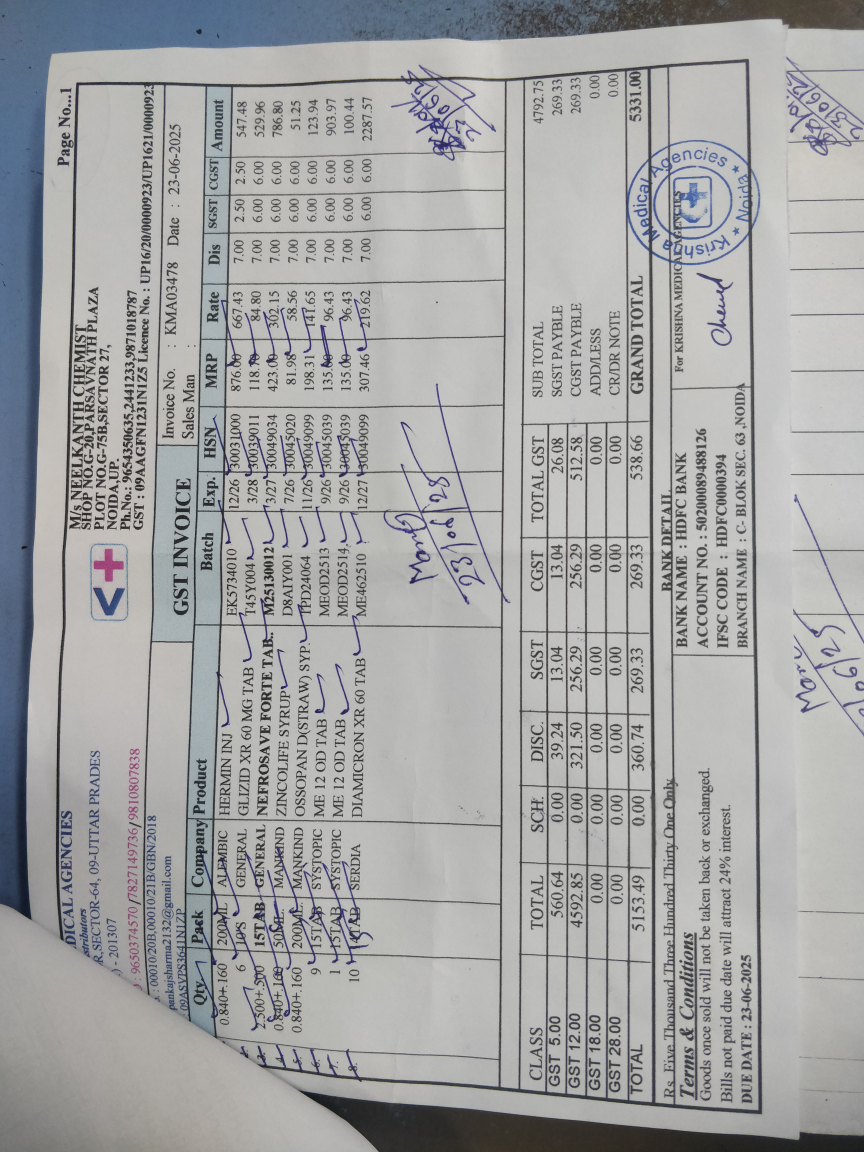 Page No...1
DICAL AGENCIES
stributors
R,SECTOR-64, 09-UTTAR PRADES
) - 201307
: 9650374570 /7827149736/9810807838
: 00010/20B,00010/21B/GBN/2018
pankajsharma2132@gmail.com
09ASVPS3641N1ZP
M/s NEELKANTH CHEMIST
SHOP NO.G-20,PARSAVNATH PLAZA
PLOT NO.G-75B,SECTOR 27,
NOIDA,UP.
Ph.No.: 9654350635,2441233,9871018787
GST : 09AAGFN1231N1Z5 Licence No. : UP16/20/0000923/UP1621/0000923
GST INVOICE
Invoice No. : KMA03478 Date : 23-06-2025
Sales Man :
Qty Pack Company Product Batch Exp. HSN MRP Rate Dis SGST CGST Amount
0.840+.160 200ML ALEMBIC HERMIN INJ EK5734010 12/26 30031000 876.00 667.43 7.00 2.50 2.50 547.48
6 10'S GENERAL GLIZID XR 60 MG TAB T45Y004 3/28 30039011 118.70 84.80 7.00 6.00 6.00 529.96
2.500+.500 15TAB GENERAL NEFROSAVE FORTE TAB.. M25130012 3/27 30049034 423.00 302.15 7.00 6.00 6.00 786.80
4. 0.840+.160 50ML. MANKIND ZINCOLIFE SYRUP D8AIY001 7/26 30045020 81.98 58.56 7.00 6.00 6.00 51.25
0.840+.160 200ML. MANKIND OSSOPAN D(STRAW) SYP. TPD24064 11/26 30049099 198.31 141.65 7.00 6.00 6.00 123.94
6. 9 15TAB SYSTOPIC ME 12 OD TAB MEOD2513 9/26 30045039 135.00 96.43 7.00 6.00 6.00 903.97
7. 1 15TAB SYSTOPIC ME 12 OD TAB MEOD2514, 9/26 30045039 135.00 96.43 7.00 6.00 6.00 100.44
8. 10 14TAB SERDIA DIAMICRON XR 60 TAB ME462510 12/27 30049099 307.46 219.62 7.00 6.00 6.00 2287.57
23/06/25
23/06/25
CLASS TOTAL SCH. DISC. SGST CGST TOTAL GST
GST 5.00 560.64 0.00 39.24 13.04 13.04 26.08
GST 12.00 4592.85 0.00 321.50 256.29 256.29 512.58
GST 18.00 0.00 0.00 0.00 0.00 0.00 0.00
GST 28.00 0.00 0.00 0.00 0.00 0.00 0.00
TOTAL 5153.49 0.00 360.74 269.33 269.33 538.66
SUB TOTAL 4792.75
SGST PAYBLE 269.33
CGST PAYBLE 269.33
ADD/LESS 0.00
CR/DR NOTE 0.00
GRAND TOTAL 5331.00
Rs. Five Thousand Three Hundred Thirty One Only
Terms & Conditions
Goods once sold will not be taken back or exchanged.
Bills not paid due date will attract 24% interest.
DUE DATE : 23-06-2025
BANK DETAIL
BANK NAME : HDFC BANK
ACCOUNT NO. : 50200089488126
IFSC CODE : HDFC0000394
BRANCH NAME : C- BLOK SEC. 63 ,NOIDA
For KRISHNA MEDICAL AGENCIES
Krishna Medical Agencies
Noida